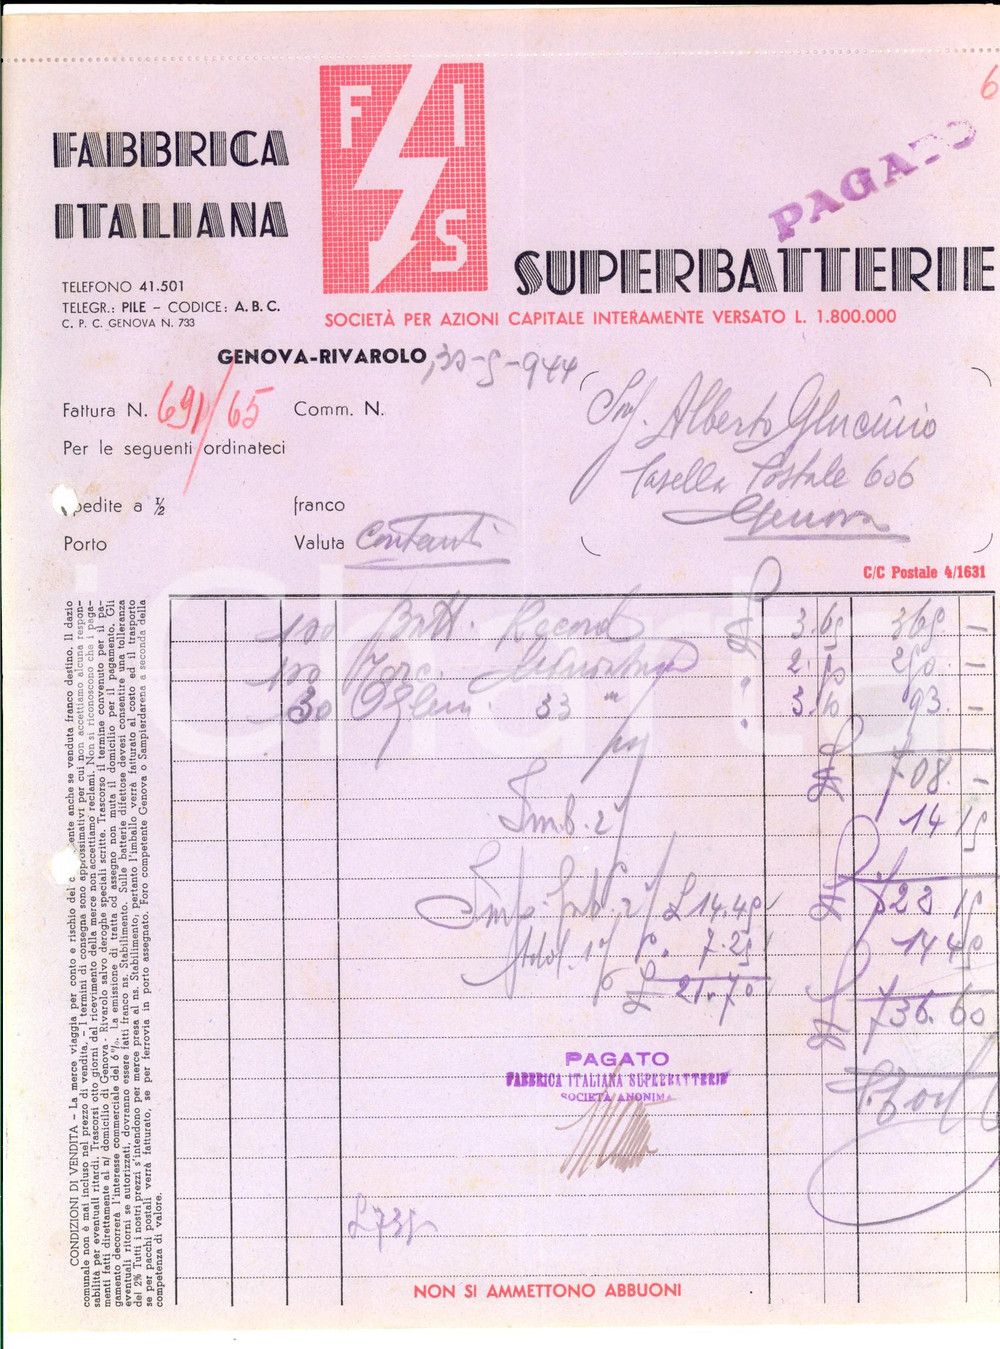 6
FABBRICA
ITALIANA
F I S
SUPERBATTERIE
PAGATO
TELEFONO 41.501
TELEGR.: PILE – CODICE: A. B. C.
C. P. C. GENOVA N. 733
SOCIETÀ PER AZIONI CAPITALE INTERAMENTE VERSATO L. 1.800.000
GENOVA-RIVAROLO, 30-5-944
Fattura N. 691/65 Comm. N.
Per le seguenti ordinateci
Alberto
Casella Postale 606
Genova
pedite a ½ franco
Porto Valuta Contanti
C/C Postale 4/1631
100 Batt. Record £ 3.65 365. –
100 Torc. 2.50 250. –
30 33 3.10 93. –
£ 708. –
Imb. 2% 14 15
£ 723 15
Imp. Entr. 2% £ 14.45 14 45
Addl. 1% 7.25
£ 21.70
£ 736. 60
PAGATO
FABBRICA ITALIANA SUPERBATTERIE
SOCIETÀ ANONIMA
£ 735
NON SI AMMETTONO ABBUONI
CONDIZIONI DI VENDITA – La merce viaggia per conto e rischio del c ente anche se venduta franco destino. Il dazio
comunale non è mai incluso nel prezzo di vendita. – I termini di consegna sono approssimativi per cui non accettiamo alcuna respon-
sabilità per eventuali ritardi. Trascorsi otto giorni dal ricevimento della merce non accettiamo reclami. Non si riconoscono che i paga-
menti fatti direttamente al n/ domicilio di Genova - Rivarolo salvo deroghe speciali scritte. Trascorso il termine convenuto per il pa-
gamento decorrerà l'interesse commerciale del 6%. La emissione di tratta od assegno non muta il domicilio per il pagamento. Gli
eventuali ritorni se autorizzati, dovranno essere fatti franco ns. Stabilimento. Sulle batterie difettose devesi consentire una tolleranza
del 2% Tutti i nostri prezzi s'intendono per merce presa al ns. Stabilimento, pertanto l'imballo verrà fatturato al costo ed il trasporto
se per pacchi postali verrà fatturato, se per ferrovia in porto assegnato. Foro competente Genova o Sampierdarena a seconda della
competenza di valore.